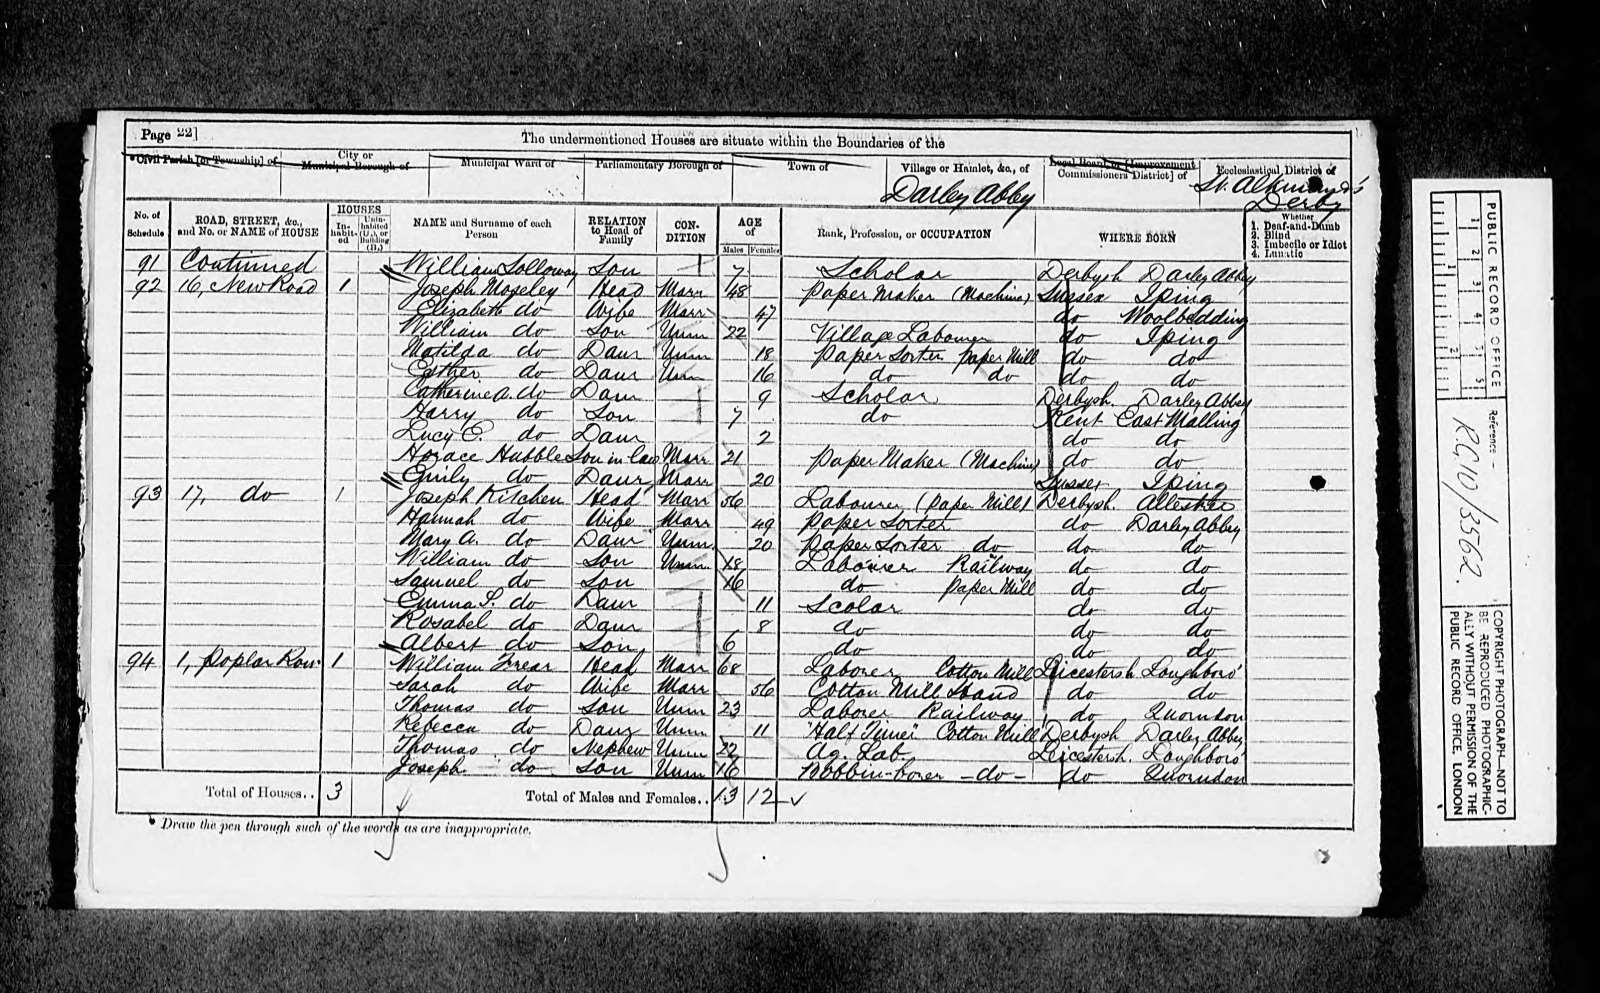 Page 22]
The undermentioned Houses are situate within the Boundaries of the
*Civil Parish [or Township] of
City or Municipal Borough of
Municipal Ward of
Parliamentary Borough of
Town of
Village or Hamlet, &c., of
Local Board, or [Improvement Commissioners District] of
Ecclesiastical District of
Darley Abby
St. Alkmund's Derby
No. of Schedule
ROAD, STREET, &c., and No. or NAME of HOUSE
HOUSES
Inhabited
Uninhabited (U.), or Building (B.)
NAME and Surname of each Person
RELATION to Head of Family
CONDITION
AGE of
Males
Females
Rank, Profession, or OCCUPATION
WHERE BORN
Whether
1. Deaf-and-Dumb
2. Blind
3. Imbecile or Idiot
4. Lunatic
91 Continued William Solloway Son 7 Scholar Derbysh Darley Abbey
92 16, New Road 1 Joseph Moseley Head Marr 48 Paper Maker (Machine) Sussex Iping
Elizabeth do Wife Marr 47 do Woolbedding
William do Son Unm 22 Village Labourer do Iping
Matilda do Daur Unm 18 Paper Sorter Paper Mill do do
Esther do Daur Unm 16 do do do do
Catherine A. do Daur 9 Scholar Derbysh. Darley Abbey
Harry do Son 7 do Kent East Malling
Lucy E. do Daur 2 do do
Horace Hubble Son in law Marr 21 Paper Maker (Machine) do do
Emily do Daur Marr 20 Sussex Iping
93 17, do 1 Joseph Kitchen Head Marr 56 Labourer (Paper Mill) Derbysh. Allestree
Hannah do Wife Marr 49 Paper Sorter do Darley Abbey
Mary A. do Daur Unm 20 Paper Sorter do do do
William do Son Unm 18 Labourer Railway do do
Samuel do Son 16 do Paper Mill do do
Emma S. do Daur 11 Scolar do do
Rosabel do Daur 8 do do do
Albert do Son 6 do do do
94 1, Poplar Row 1 William Frear Head Marr 68 Laborer Cotton Mill Leicestersh Loughboro'
Sarah do Wife Marr 56 Cotton Mill Hand do do
Thomas do Son Unm 23 Laborer Railway do Quorndon
Rebecca do Daur Unm 11 Half Timer Cotton Mill Derbysh Darley Abbey
Thomas do Nephew Unm 22 Ag. Lab. Leicestersh. Loughboro'
Joseph do Son Unm 16 Bobbin-borer - do - do Quorndon
Total of Houses.. 3
Total of Males and Females.. 13 12
* Draw the pen through such of the words as are inappropriate.
PUBLIC RECORD OFFICE
1 2 3 4 5
1 2
Reference:-
RG10/3562.
COPYRIGHT PHOTOGRAPH—NOT TO BE REPRODUCED PHOTOGRAPHICALLY WITHOUT PERMISSION OF THE PUBLIC RECORD OFFICE, LONDON